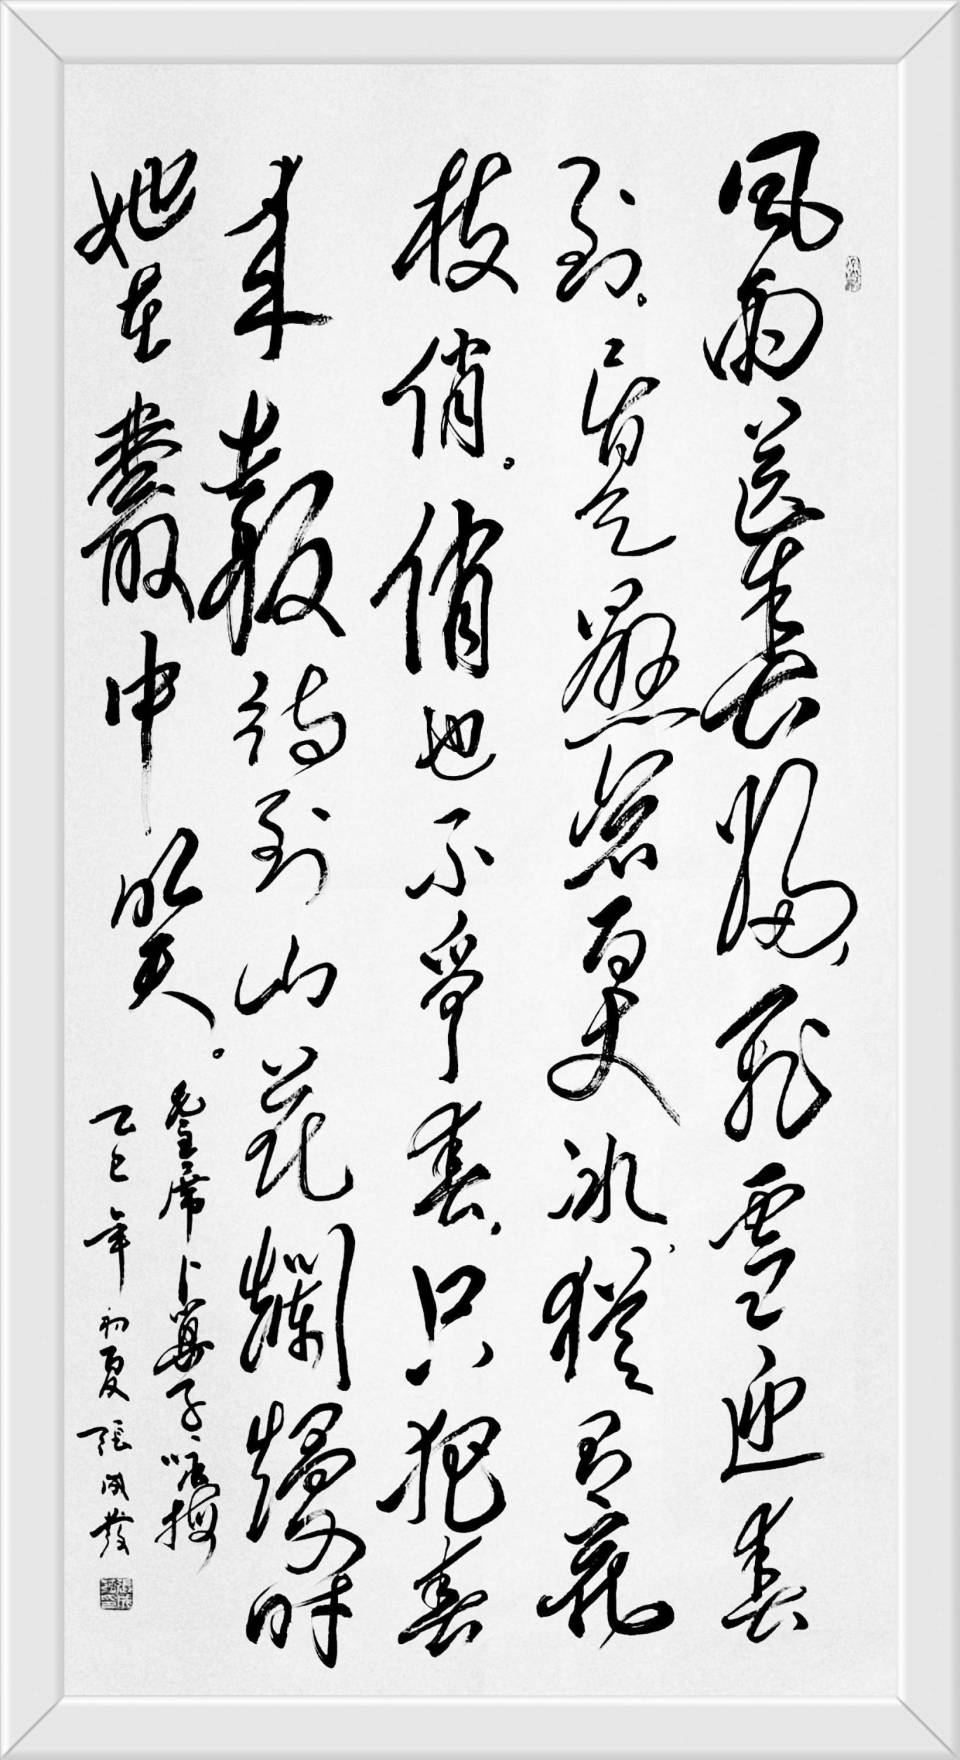 風雨送春歸、飛雪迎春
到。已是懸崖百丈冰、猶有花
枝俏。俏也不爭春、只把春
来報待到山花爛熳時
她在叢中咲。
毛主席卜算子、咏梅
乙巳年初夏張成發